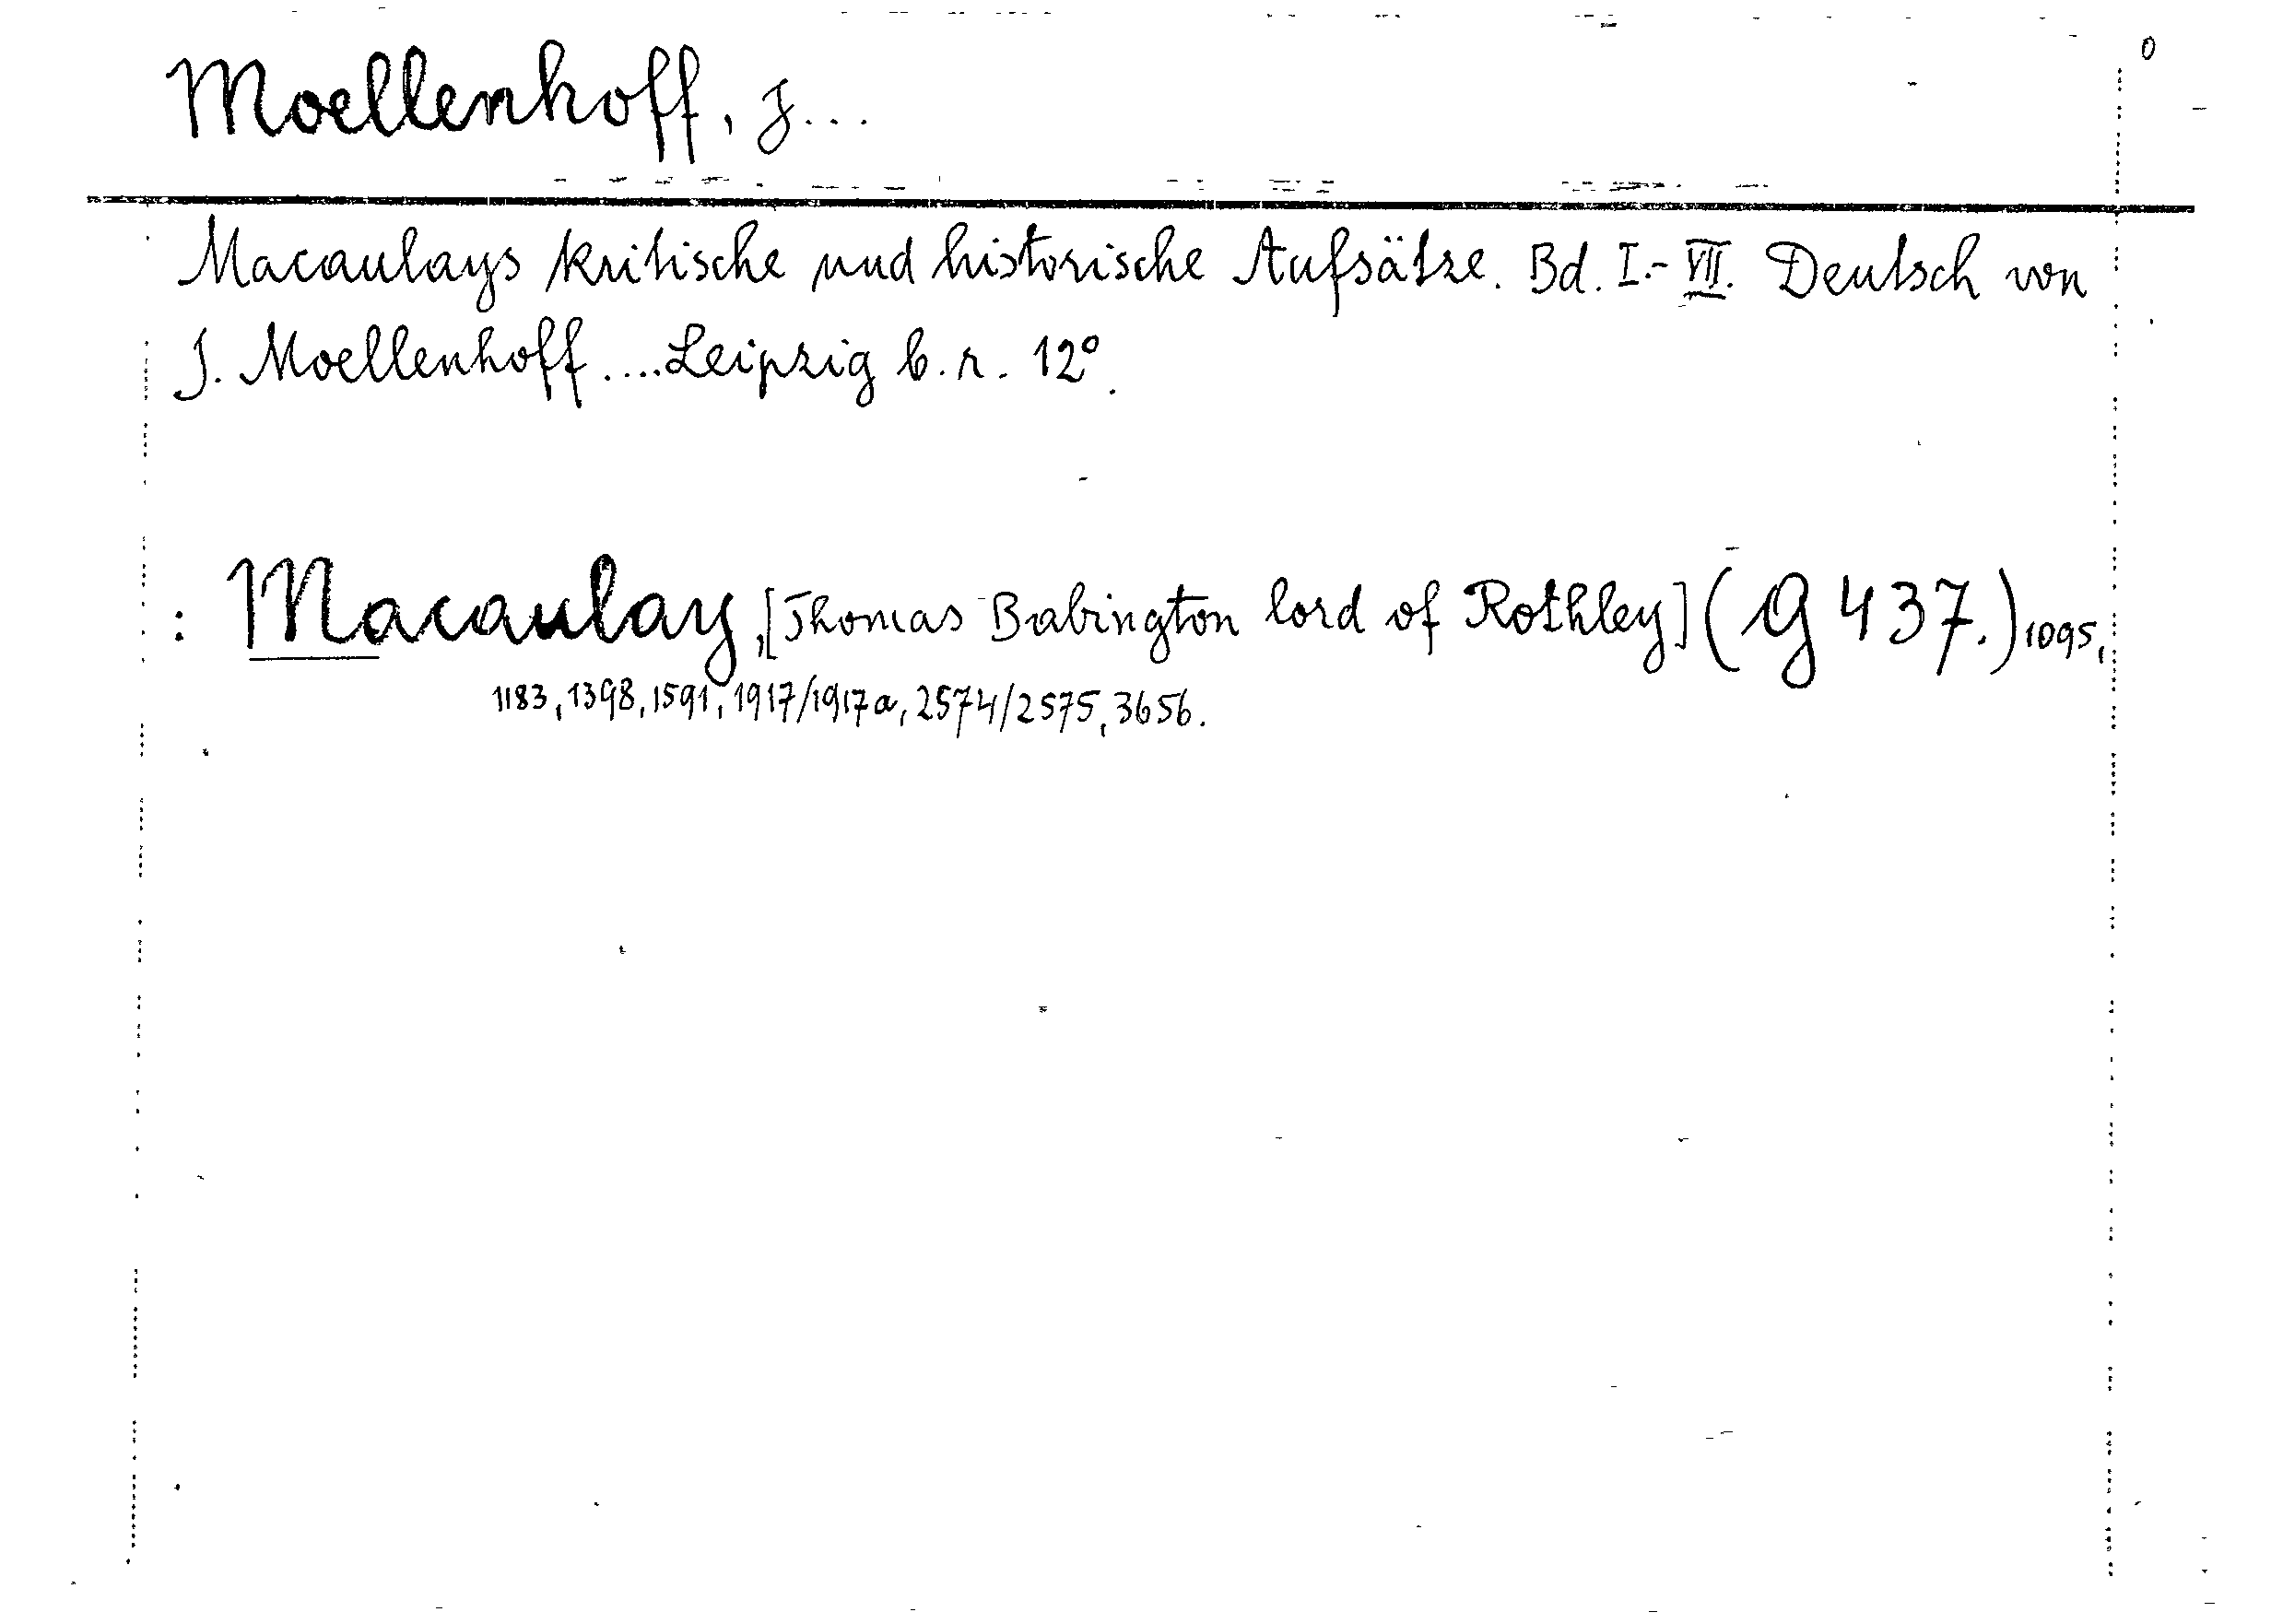 0
Moellenhoff, J...
Macaulays kritische und historische Aufsätze. Bd. I.-VII. Deutsch von
J. Moellenhoff....Leipzig b.r. 12°.
: Macaulay,[Thomas Babington lord of Rothley](G 437.)1095,
1183, 1398, 1591, 1917/1917a, 2574/2575, 3656.